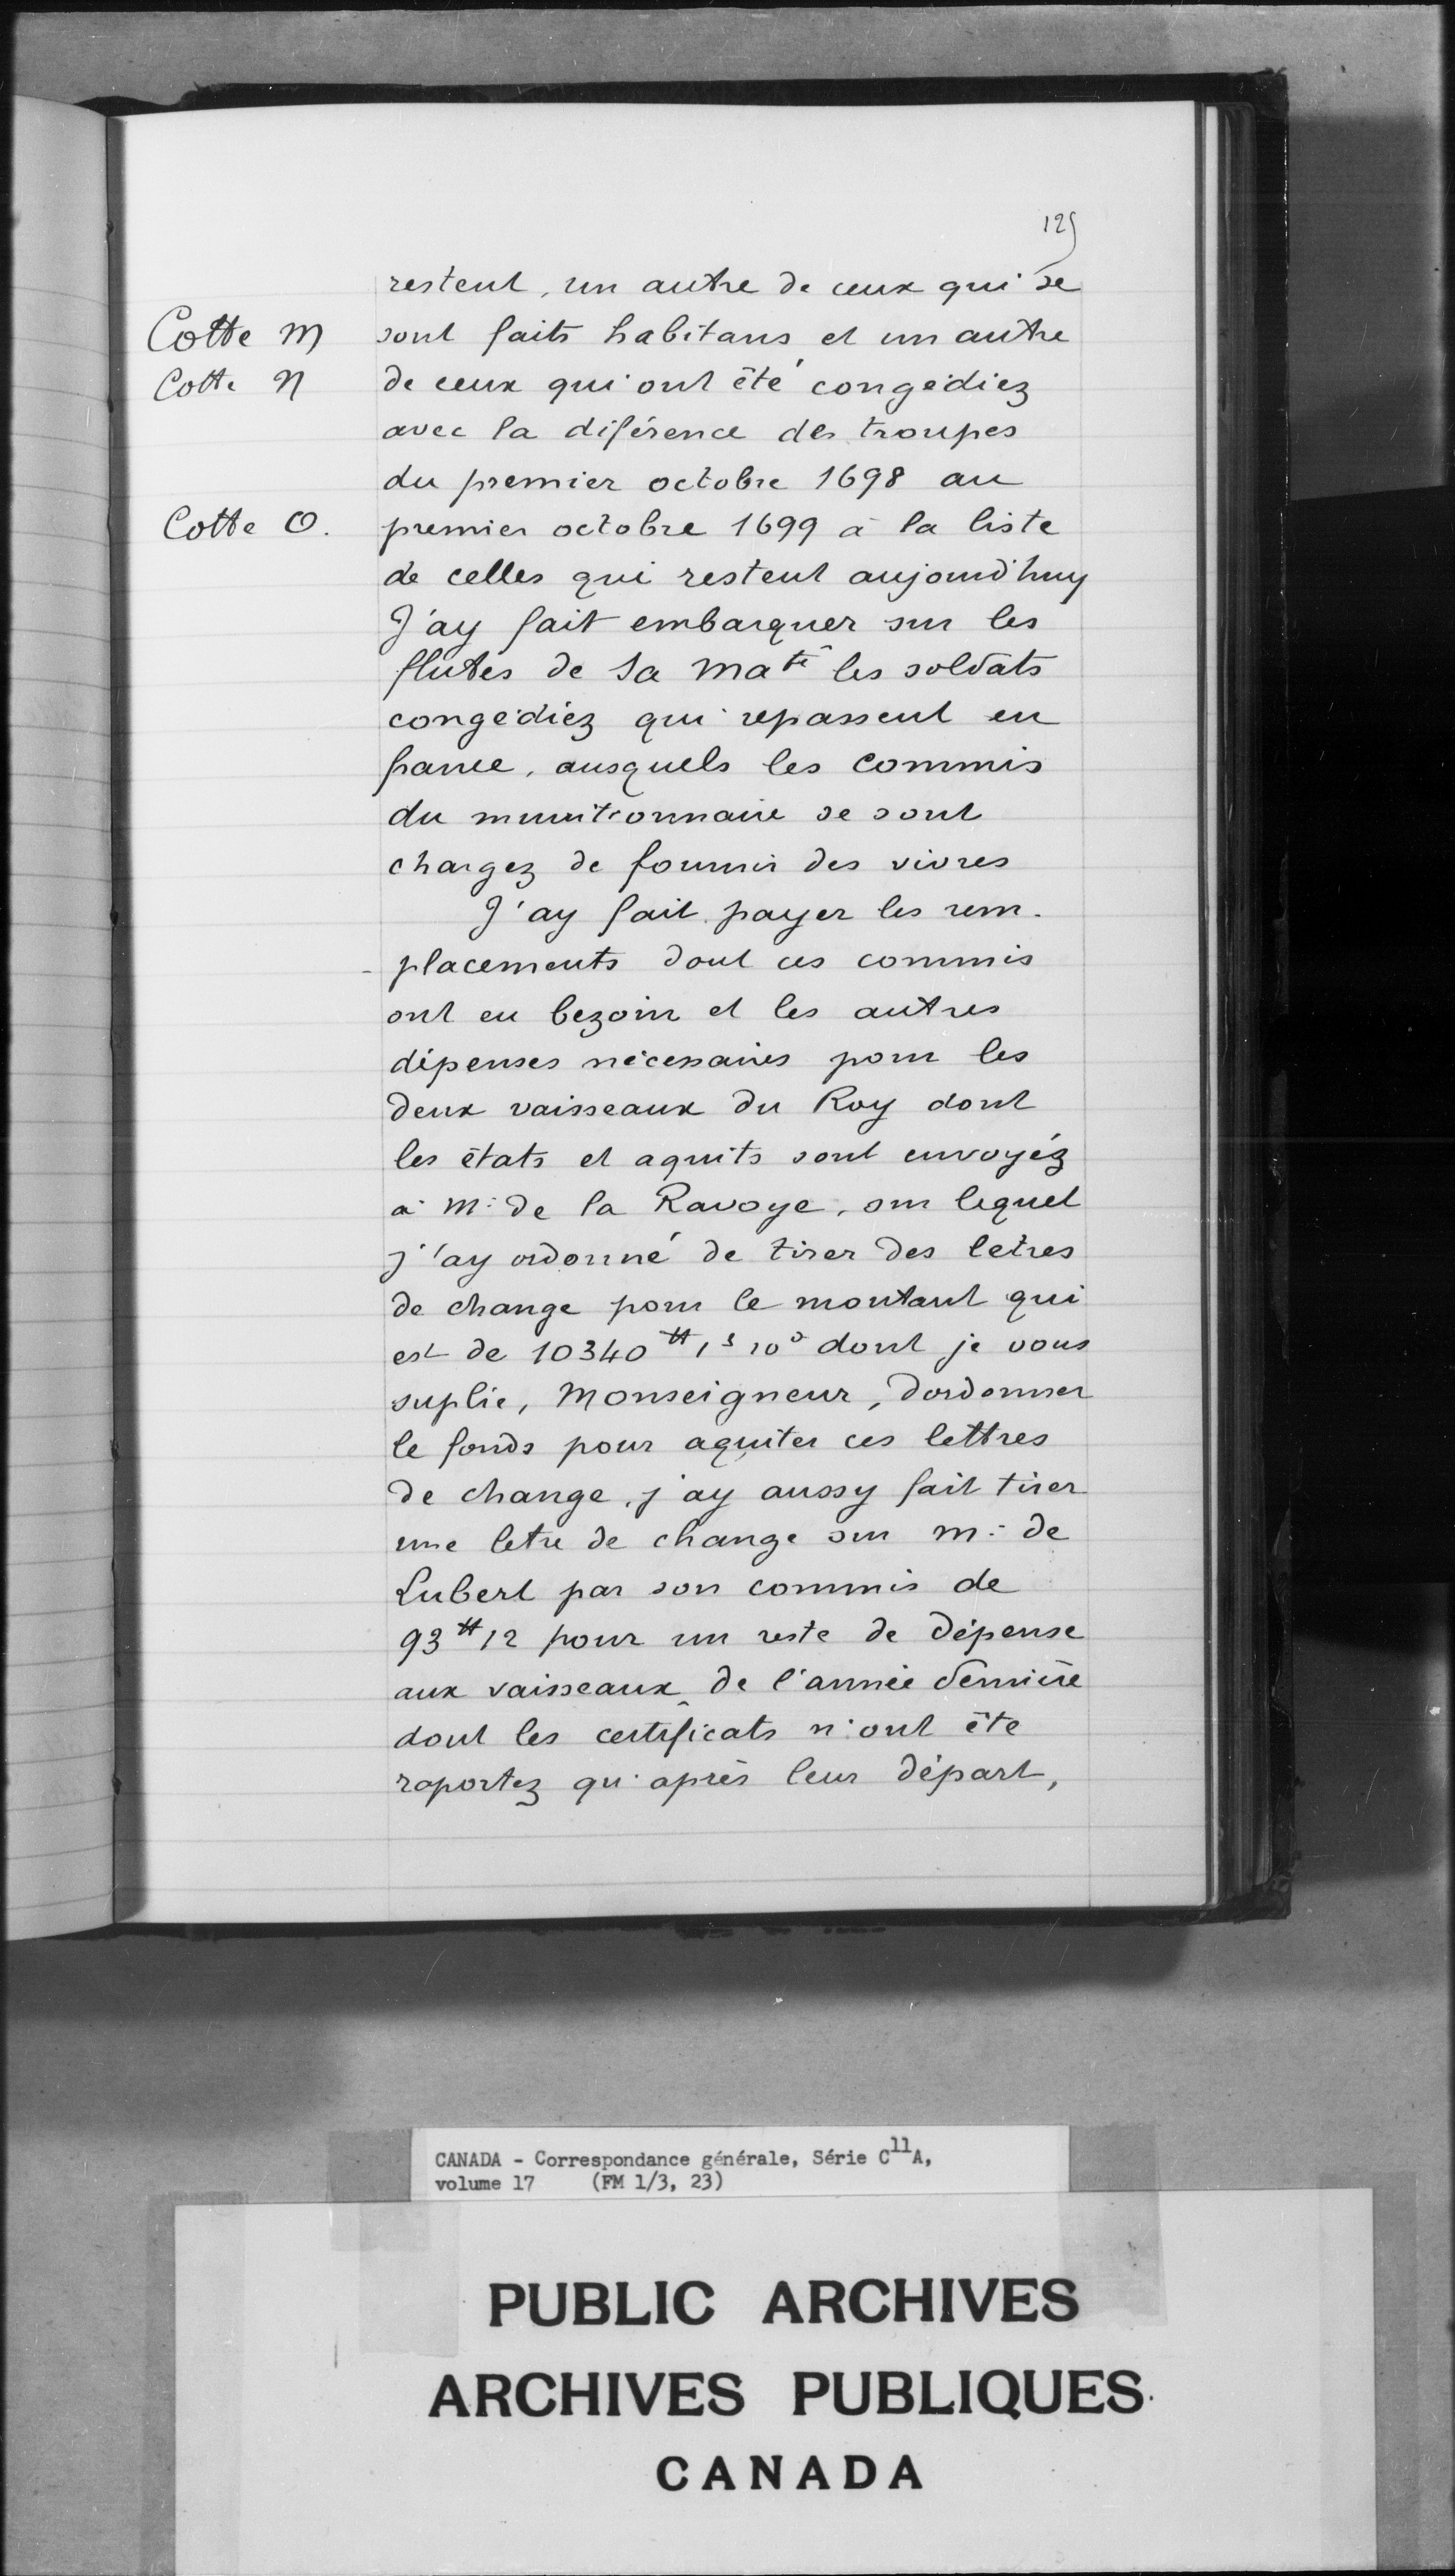 125
restent, un autre de ceux qui se
Cotte M sont faits habitans et un autre
Cotte N de ceux qui ont été congédiez
avec la diférence des troupes
du premier octobre 1698 au
Cotte O. premier octobre 1699 à la liste
de celles qui restent aujourd'huy
J'ay fait embarquer sur les
flûtes de Sa Maté les soldats
congédiez qui repassent en
france, ausquels les commis
du munitionnaire se sont
chargez de fournir des vivres
J'ay fait payer les rem-
-placements dont ces commis
ont eu bezoin et les autres
dépenses nécessaires pour les
deux vaisseaux du Roy dont
les états et aquits sont envoyéz
à M: de la Ravoye, sur lequel
j'ay ordonné de tirer des letres
de change pour le montant qui
est de 10340 ₶ 1 s 10 d dont je vous
suplie, Monseigneur, dordonner
le fonds pour aquiter ces lettres
de change, j'ay aussy fait tirer
une letre de change sur M: de
Lubert par son commis de
93 ₶ 12 pour un reste de dépense
aux vaisseaux de l'année dernière
dont les certificats n'ont été
raportez qu'après leur départ,
CANADA - Correspondance générale, Série C11A,
volume 17 (FM 1/3, 23)
PUBLIC ARCHIVES
ARCHIVES PUBLIQUES
CANADA